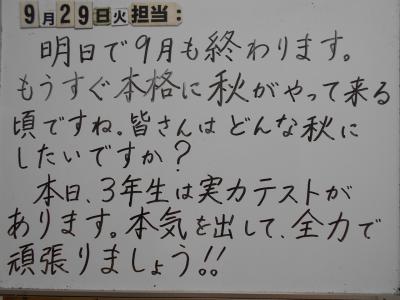 9月29日火担当:
明日で9月も終わります。
もうすぐ本格に秋がやって来る
頃ですね。皆さんは どんな秋に
したいですか?
本日、3年生は実力テストが
あります。本気を出して、全力で
頑張りましょう!!